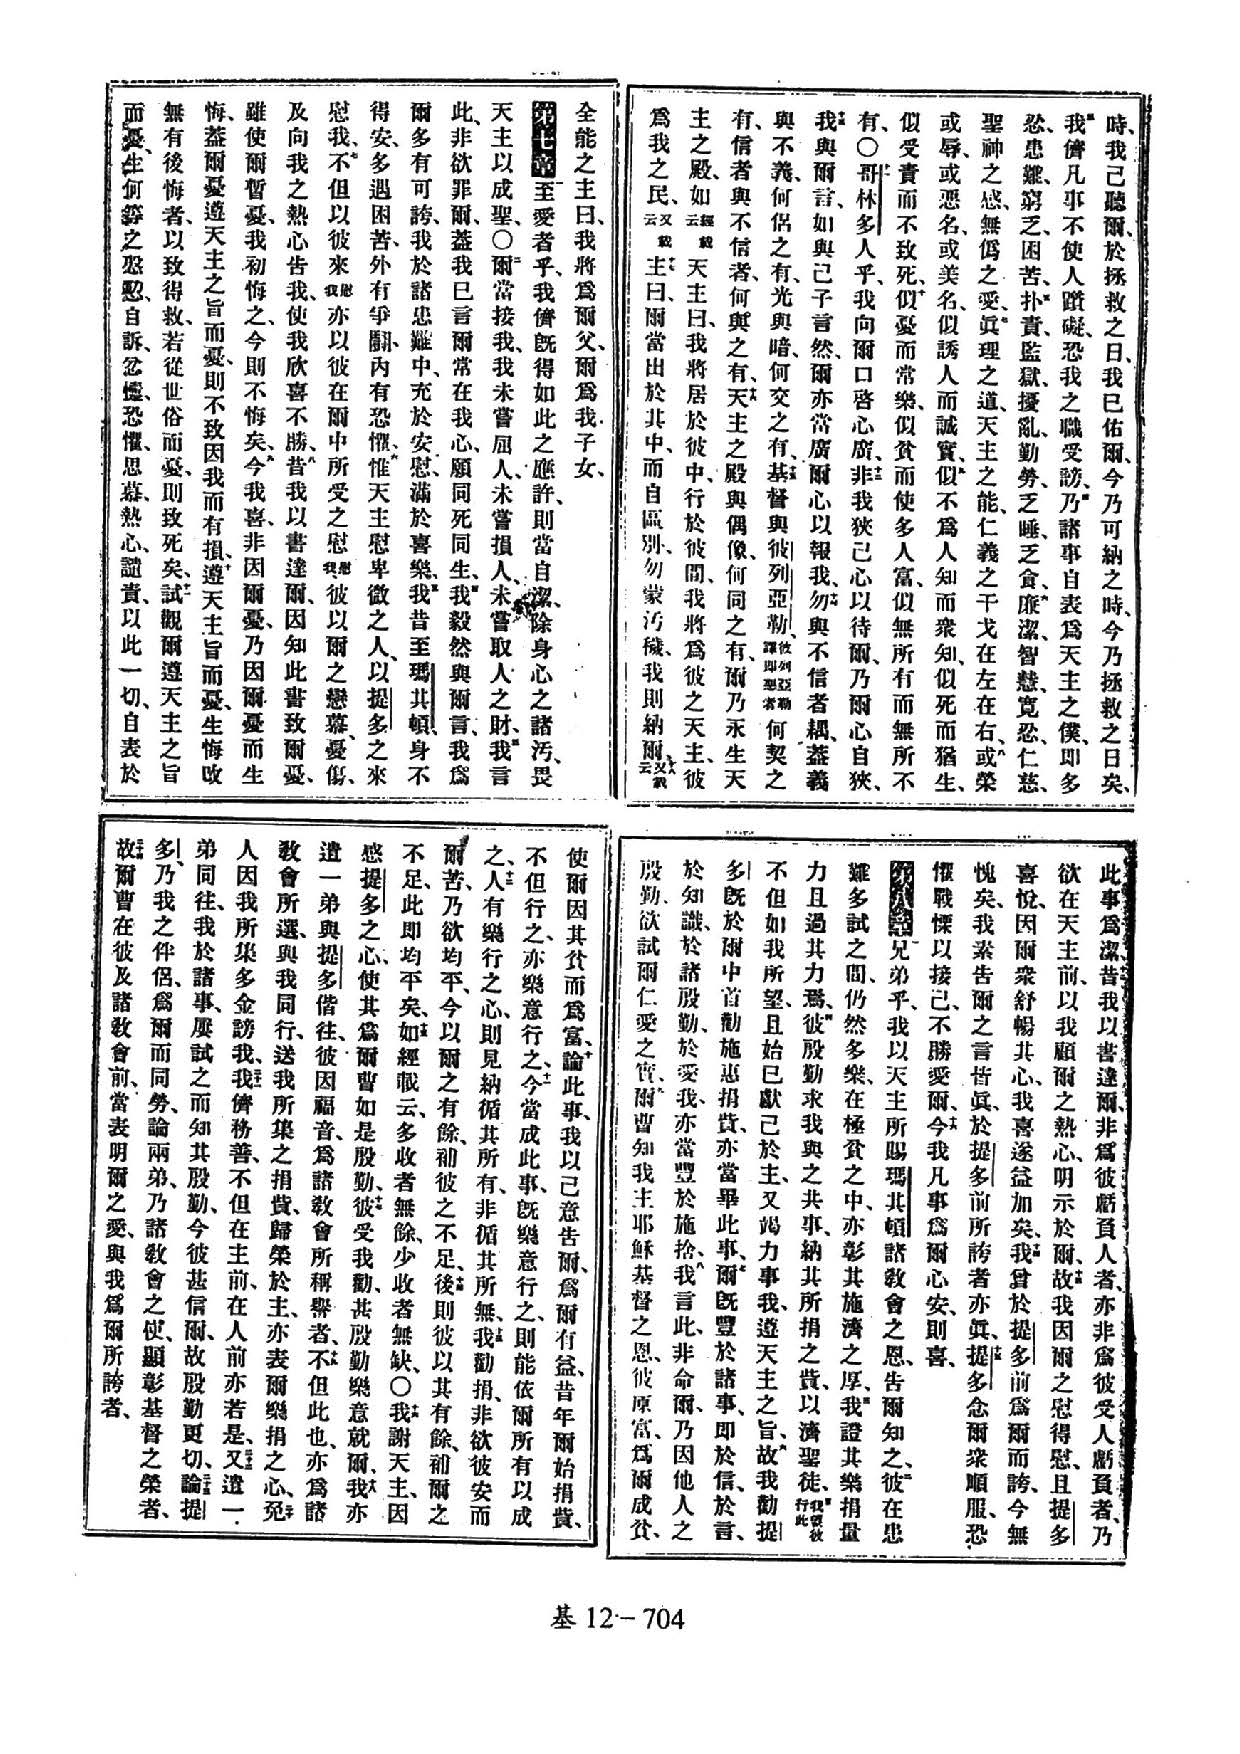 時、我已聽爾、於拯救之日、我已佑爾、今乃可納之時、今乃拯救之日矣、
我儕凡事不使人躓礙、恐我之職受謗、乃諸事自表爲天主之僕、即多
忍、患難、窮乏、困苦、扑責、監獄、擾亂、勤勞、乏睡、乏食、廉潔、智慧、寬忍、仁慈、
聖神之感、無僞之愛、眞理之道、天主之能、仁義之干戈在左在右、或榮
或辱、或惡名、或美名、似誘人而誠實、似不爲人知而衆知、似死而猶生、
似受責而不致死、似憂而常樂、似貧而使多人富、似無所有而無所不
有、〇哥林多人乎、我向爾口啓心廣、非我狹己心以待爾、乃爾心自狹、
我與爾言、如與己子言然、爾亦當廣爾心以報我、勿與不信者耦、蓋義
與不義、何侶之有、光與暗、何交之有、基督與彼列亞勒、彼列亞勒譯即惡者何契之
有、信者與不信者、何與之有、天主之殿與偶像、何同之有、爾乃永生天
主之殿、如經載云天主曰、我將居於彼中、行於彼間、我將爲彼之天主、彼
爲我之民、又載云主曰、爾當出於其中、而自區別、勿蒙汚穢、我則納爾、又載云
全能之主曰、我將爲爾父、爾爲我子女、
第七章至愛者乎、我儕旣得如此之應許、則當自潔、除身心之諸汚、畏
天主以成聖、〇爾當接我、我未嘗屈人、未嘗損人、未嘗取人之財、我言
此、非欲罪爾、蓋我已言爾常在我心、願同死同生、我毅然與爾言、我爲
爾多有可誇、我於諸患難中、充於安慰、滿於喜樂、我昔至瑪其頓、身不
得安、多遇困苦、外有爭鬭、內有恐懼、惟天主慰卑微之人、以提多之來
慰我、不但以彼來慰我亦以彼在爾中所受之慰慰我彼以爾之戀慕、憂傷、
及向我之熱心告我、使我欣喜不勝、昔我以書達爾、因知此書致爾憂、
雖使爾暫憂、我初悔之、今則不悔矣、今我喜、非因爾憂、乃因爾憂而生
悔、蓋爾憂遵天主之旨而憂、則不致因我而有損、遵天主旨而憂、生悔改
無有後悔者、以致得救、若從世俗而憂、則致死矣、試觀爾遵天主之旨
而憂、生何等之懇懃、自訴、忿懥、恐懼、思慕、熱心、譴責、以此一切、自表於
此事爲潔、昔我以書達爾、非爲彼虧負人者、亦非爲彼受人虧負者、乃
欲在天主前、以我顧爾之熱心、明示於爾、故我因爾之慰得慰、且提多
喜悅、因爾衆舒暢其心、我喜遂益加矣、我曾於提多前爲爾而誇、今無
愧矣、我素告爾之言皆眞、於提多前所誇者亦眞、提多念爾衆順服、恐
懼戰慄以接己、不勝愛爾、今我凡事爲爾心安、則喜、
第八章兄弟乎、我以天主所賜瑪其頓諸敎會之恩、告爾知之、彼在患
難多試之間、仍然多樂、在極貧之中、亦彰其施濟之厚、我證其樂捐量
力且過其力焉、彼殷勤求我與之共事、納其所捐之貲、以濟聖徒、
不但如我所望、且始已獻己於主、又竭力事我、遵天主之旨、故我勸提
多旣於爾中首勸施惠捐貲、亦當畢此事、爾旣豐於諸事、即於信、於言、
於知識、於諸殷勤、於愛我、亦當豐於施捨、我言此、非命爾、乃因他人之
殷勤、欲試爾仁愛之實、爾曹知我主耶穌基督之恩、彼原富、爲爾成貧、
使爾因其貧而爲富、論此事、我以己意告爾、爲爾有益、昔年爾始捐貲、
不但行之、亦樂意行之、今當成此事、旣樂意行之、則能依爾所有以成
之、人有樂行之心、則見納、循其所有、非循其所無、我勸捐、非欲彼安而
爾苦、乃欲均平、今以爾之有餘、補彼之不足、後則彼以其有餘、補爾之
不足、此即均平矣、如經載云、多收者無餘、少收者無缺、〇我謝天主、因
感提多之心、使其爲爾曹如是殷勤、彼受我勸、甚殷勤樂意就爾、我亦
遣一弟與提多偕往、彼因福音、爲諸敎會所稱譽者、不但此也、亦爲諸
敎會所選、與我同行、送我所集之捐貲、歸榮於主、亦表爾樂捐之心、免
人因我所集多金謗我、我儕務善、不但在主前、在人前亦若是、又遣一
弟同往、我於諸事、屢試之而知其殷勤、今彼甚信爾、故殷勤更切、論提
多、乃我之伴侶、爲爾而同勞、論兩弟、乃諸敎會之使、顯彰基督之榮者、
故爾曹在彼及諸敎會前、當表明爾之愛、與我爲爾所誇者、
基 12－704